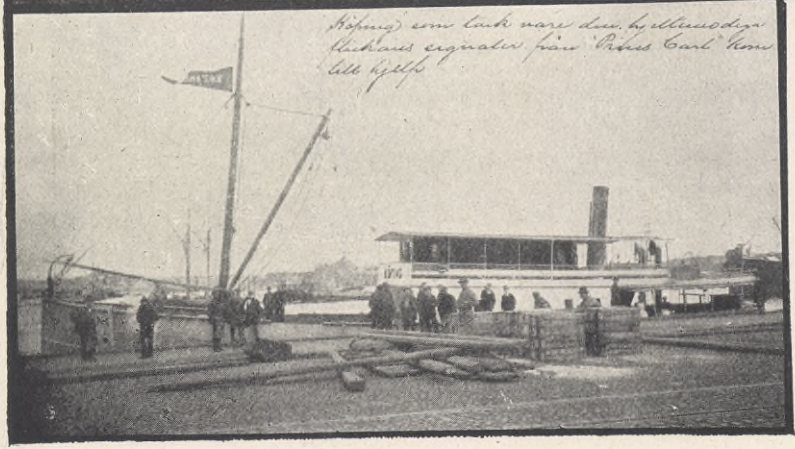 Köping) som tack vare den hjeltemodiga
flickans signaler från "Prins Carl" kom
till hjelp